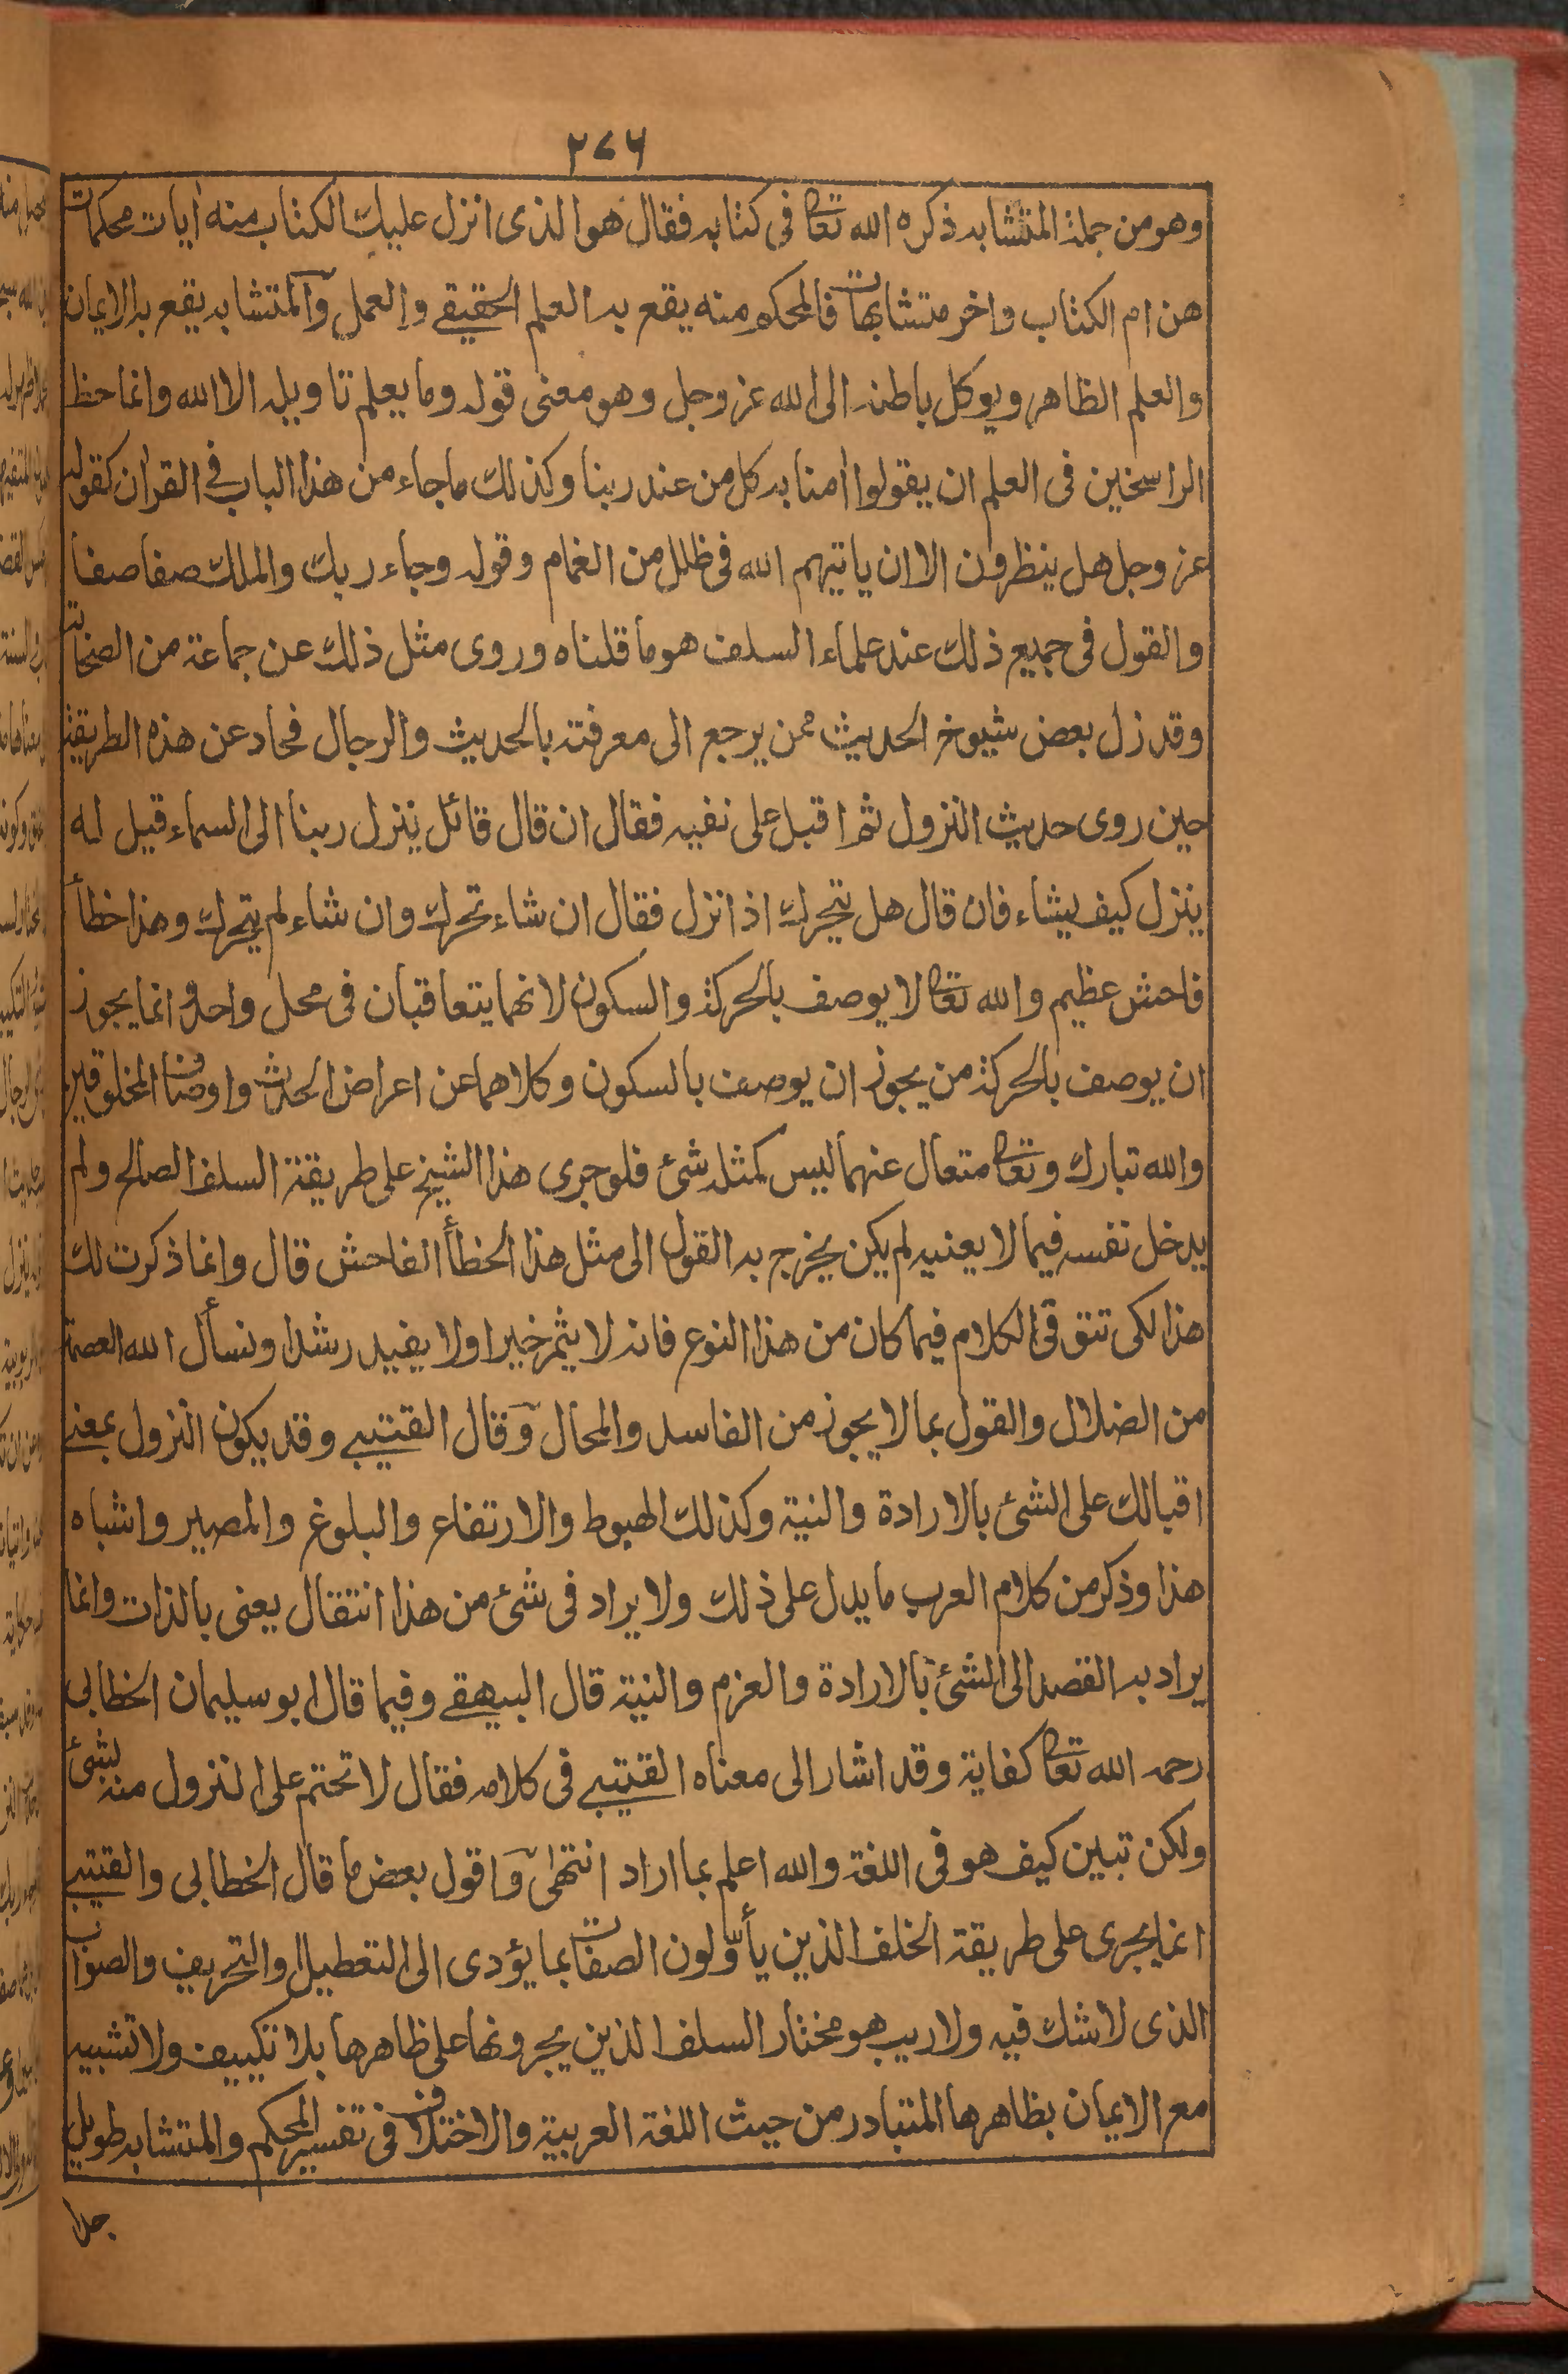 ٢٧٦
وهو من جملة المتشابه ذكره الله تعالى فى كتابه فقال هو الذى انزل عليك الكتاب منه اٰيات محكمات
هن ام الكتاب واخر متشابهات فالمحكم منه يقع به العلم الحقيقے والعمل والمتشابه يقع به الايمان
والعلم الظاهر ويوكل باطنه الى الله عز وجل وهو معنى قوله وما يعلم تاويله الا الله وانما حظ
الراسخين فى العلم ان يقولوا اٰمنا به كل من عند ربنا وكذلك ما جاء من هذا الباب فے القراٰن كقوله
عز وجل هل ينظرون الا ان ياتيهم الله فى ظلل من الغمام وقوله وجاء ربك والملك صفا صفا
والقول فى جميع ذلك عند علماء السلف هو ما قلناه وروى مثل ذلك عن جماعة من الصحابة
وقد زل بعض شيوخ الحديث ممن يرجع الى معرفته بالحديث والرجال فحاد عن هذه الطريقة
حين روى حديث النزول ثم اقبل على نفسه فقال ان قال قائل ينزل ربنا الى السماء قيل له
ينزل كيف يشاء فان قال هل يتحرك اذا نزل فقال ان شاء تحرك وان شاء لم يتحرك وهذا خطأ
فاحش عظيم والله تعالى لا يوصف بالحركة والسكون لانهما يتعاقبان فى محل واحد وانما يجوز
ان يوصف بالحركة من يجوز ان يوصف بالسكون وكلاهما عن اعراض الحدث واوصاف المخلوقين
والله تبارك وتعالى متعال عنهما ليس كمثله شئ فلو جرى هذا الشيخ على طريقة السلف الصالح ولم
يدخل نفسه فيما لا يعنيه لم يكن يخرج به القول الى مثل هذا الخطأ الفاحش قال وانما ذكرت لك
هذا لكى تتق فى الكلام فيما كان من هذا النوع فانه لا يثمر خيرا ولا يفيد رشدا ونسأل الله العصمة
من الضلال والقول بما لا يجوز من الفاسد والمحال وقال القتيبے وقد يكون النزول بمعنے
اقبالك على الشئ بالارادة والنية وكذلك الهبوط والارتفاع والبلوغ والمصير واشباه
هذا وذكر من كلام العرب ما يدل على ذلك ولا يراد فى شئ من هذا انتقال يعنى بالذات وانما
يراد به القصد الى الشئ بالارادة والعزم والنية قال البيهقے وفيما قال ابو سليمان الخطابى
رحمه الله تعالى كفاية وقد اشار الى معناه القتيبے فى كلامه فقال لا تحتم على النزول منه بشئ
ولكن تبين كيف هو فى اللغة والله اعلم بما اراد انتهى واقول بعض ما قال الخطابى والقتيبے
انما يجرى على طريقة الخلف الذين يأوّلون الصفات بما يؤدى الى التعطيل والتحريف والصواب
الذى لا شك فيه ولا ريب هو مختار السلف الذين يجرونها على ظاهرها بلا تكييف ولا تشبيه
مع الايمان بظاهرها المتبادر من حيث اللغة العربية والاختلاف فى تفسير المحكم والمتشابه طويل
جدا